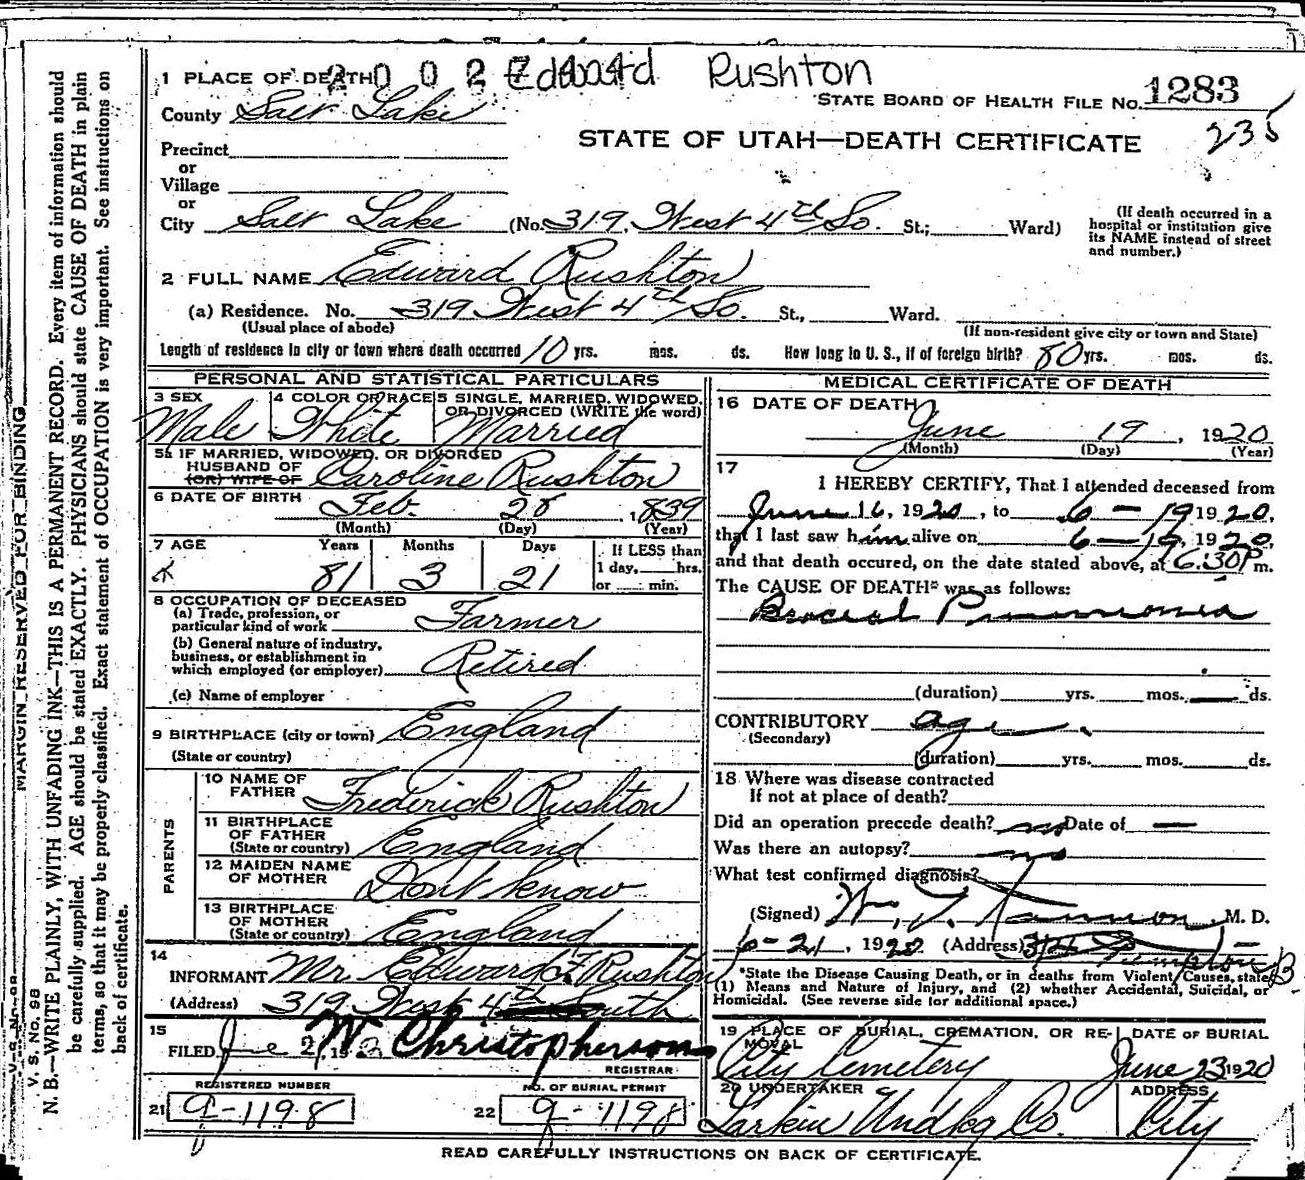 Edward Rushton
1 PLACE OF DEATH
STATE BOARD OF HEALTH FILE No. 1283
County Salt Lake
235
STATE OF UTAH—DEATH CERTIFICATE
Precinct
or
Village
or
City Salt Lake (No. 319 West 4th So. St.; Ward)
(If death occurred in a
hospital or institution give
its NAME instead of street
and number.)
2 FULL NAME Edward Rushton
(a) Residence. No. 319 West 4th So. St., Ward.
(Usual place of abode) (If non-resident give city or town and State)
Length of residence in city or town where death occurred 10 yrs. mos. ds. How long in U. S., if of foreign birth? 80 yrs. mos. ds.
PERSONAL AND STATISTICAL PARTICULARS
3 SEX 4 COLOR OR RACE 5 SINGLE, MARRIED, WIDOWED,
OR DIVORCED (WRITE the word)
Male White Married
5a IF MARRIED, WIDOWED, OR DIVORCED
HUSBAND OF
(OR) WIFE OF Caroline Rushton
6 DATE OF BIRTH Feb. 28 1839
(Month) (Day) (Year)
7 AGE Years Months Days If LESS than
1 day, hrs.
or min.
81 3 21
8 OCCUPATION OF DECEASED
(a) Trade, profession, or
particular kind of work Farmer
(b) General nature of industry,
business, or establishment in
which employed (or employer) Retired
(c) Name of employer
9 BIRTHPLACE (city or town) England
(State or country)
PARENTS
10 NAME OF
FATHER Frederick Rushton
11 BIRTHPLACE
OF FATHER
(State or country) England
12 MAIDEN NAME
OF MOTHER Dont know
13 BIRTHPLACE
OF MOTHER
(State or country) England
14
INFORMANT Mr. Edward Rushton
(Address) 319 West 4th South
15
FILED June 2 W Christopherson
REGISTRAR
REGISTERED NUMBER NO. OF BURIAL PERMIT
21 9-1198 22 9-1198
MEDICAL CERTIFICATE OF DEATH
16 DATE OF DEATH
June 19, 1920
(Month) (Day) (Year)
17
I HEREBY CERTIFY, That I attended deceased from
June 16, 1920, to 6-19 1920,
that I last saw him alive on 6-19, 1920,
and that death occured, on the date stated above, at 6:30 P m.
The CAUSE OF DEATH* was as follows:
Pneumonia
(duration) yrs. mos. ds.
CONTRIBUTORY age
(Secondary)
(duration) yrs. mos. ds.
18 Where was disease contracted
If not at place of death?
Did an operation precede death? no Date of —
Was there an autopsy? no
What test confirmed diagnosis?
(Signed) Wm. M. D.
6-21, 1920 (Address)
*State the Disease Causing Death, or in deaths from Violent Causes, state
(1) Means and Nature of Injury, and (2) whether Accidental, Suicidal, or
Homicidal. (See reverse side for additional space.)
19 PLACE OF BURIAL, CREMATION, OR RE-
MOVAL DATE OF BURIAL
City Cemetery June 23 1920
20 UNDERTAKER ADDRESS
Larkin Undkg Co. City
READ CAREFULLY INSTRUCTIONS ON BACK OF CERTIFICATE.
MARGIN RESERVED FOR BINDING
V. S. No. 98
N. B.—WRITE PLAINLY, WITH UNFADING INK—THIS IS A PERMANENT RECORD. Every item of information should
be carefully supplied. AGE should be stated EXACTLY. PHYSICIANS should state CAUSE OF DEATH in plain
terms, so that it may be properly classified. Exact statement of OCCUPATION is very important. See instructions on
back of certificate.